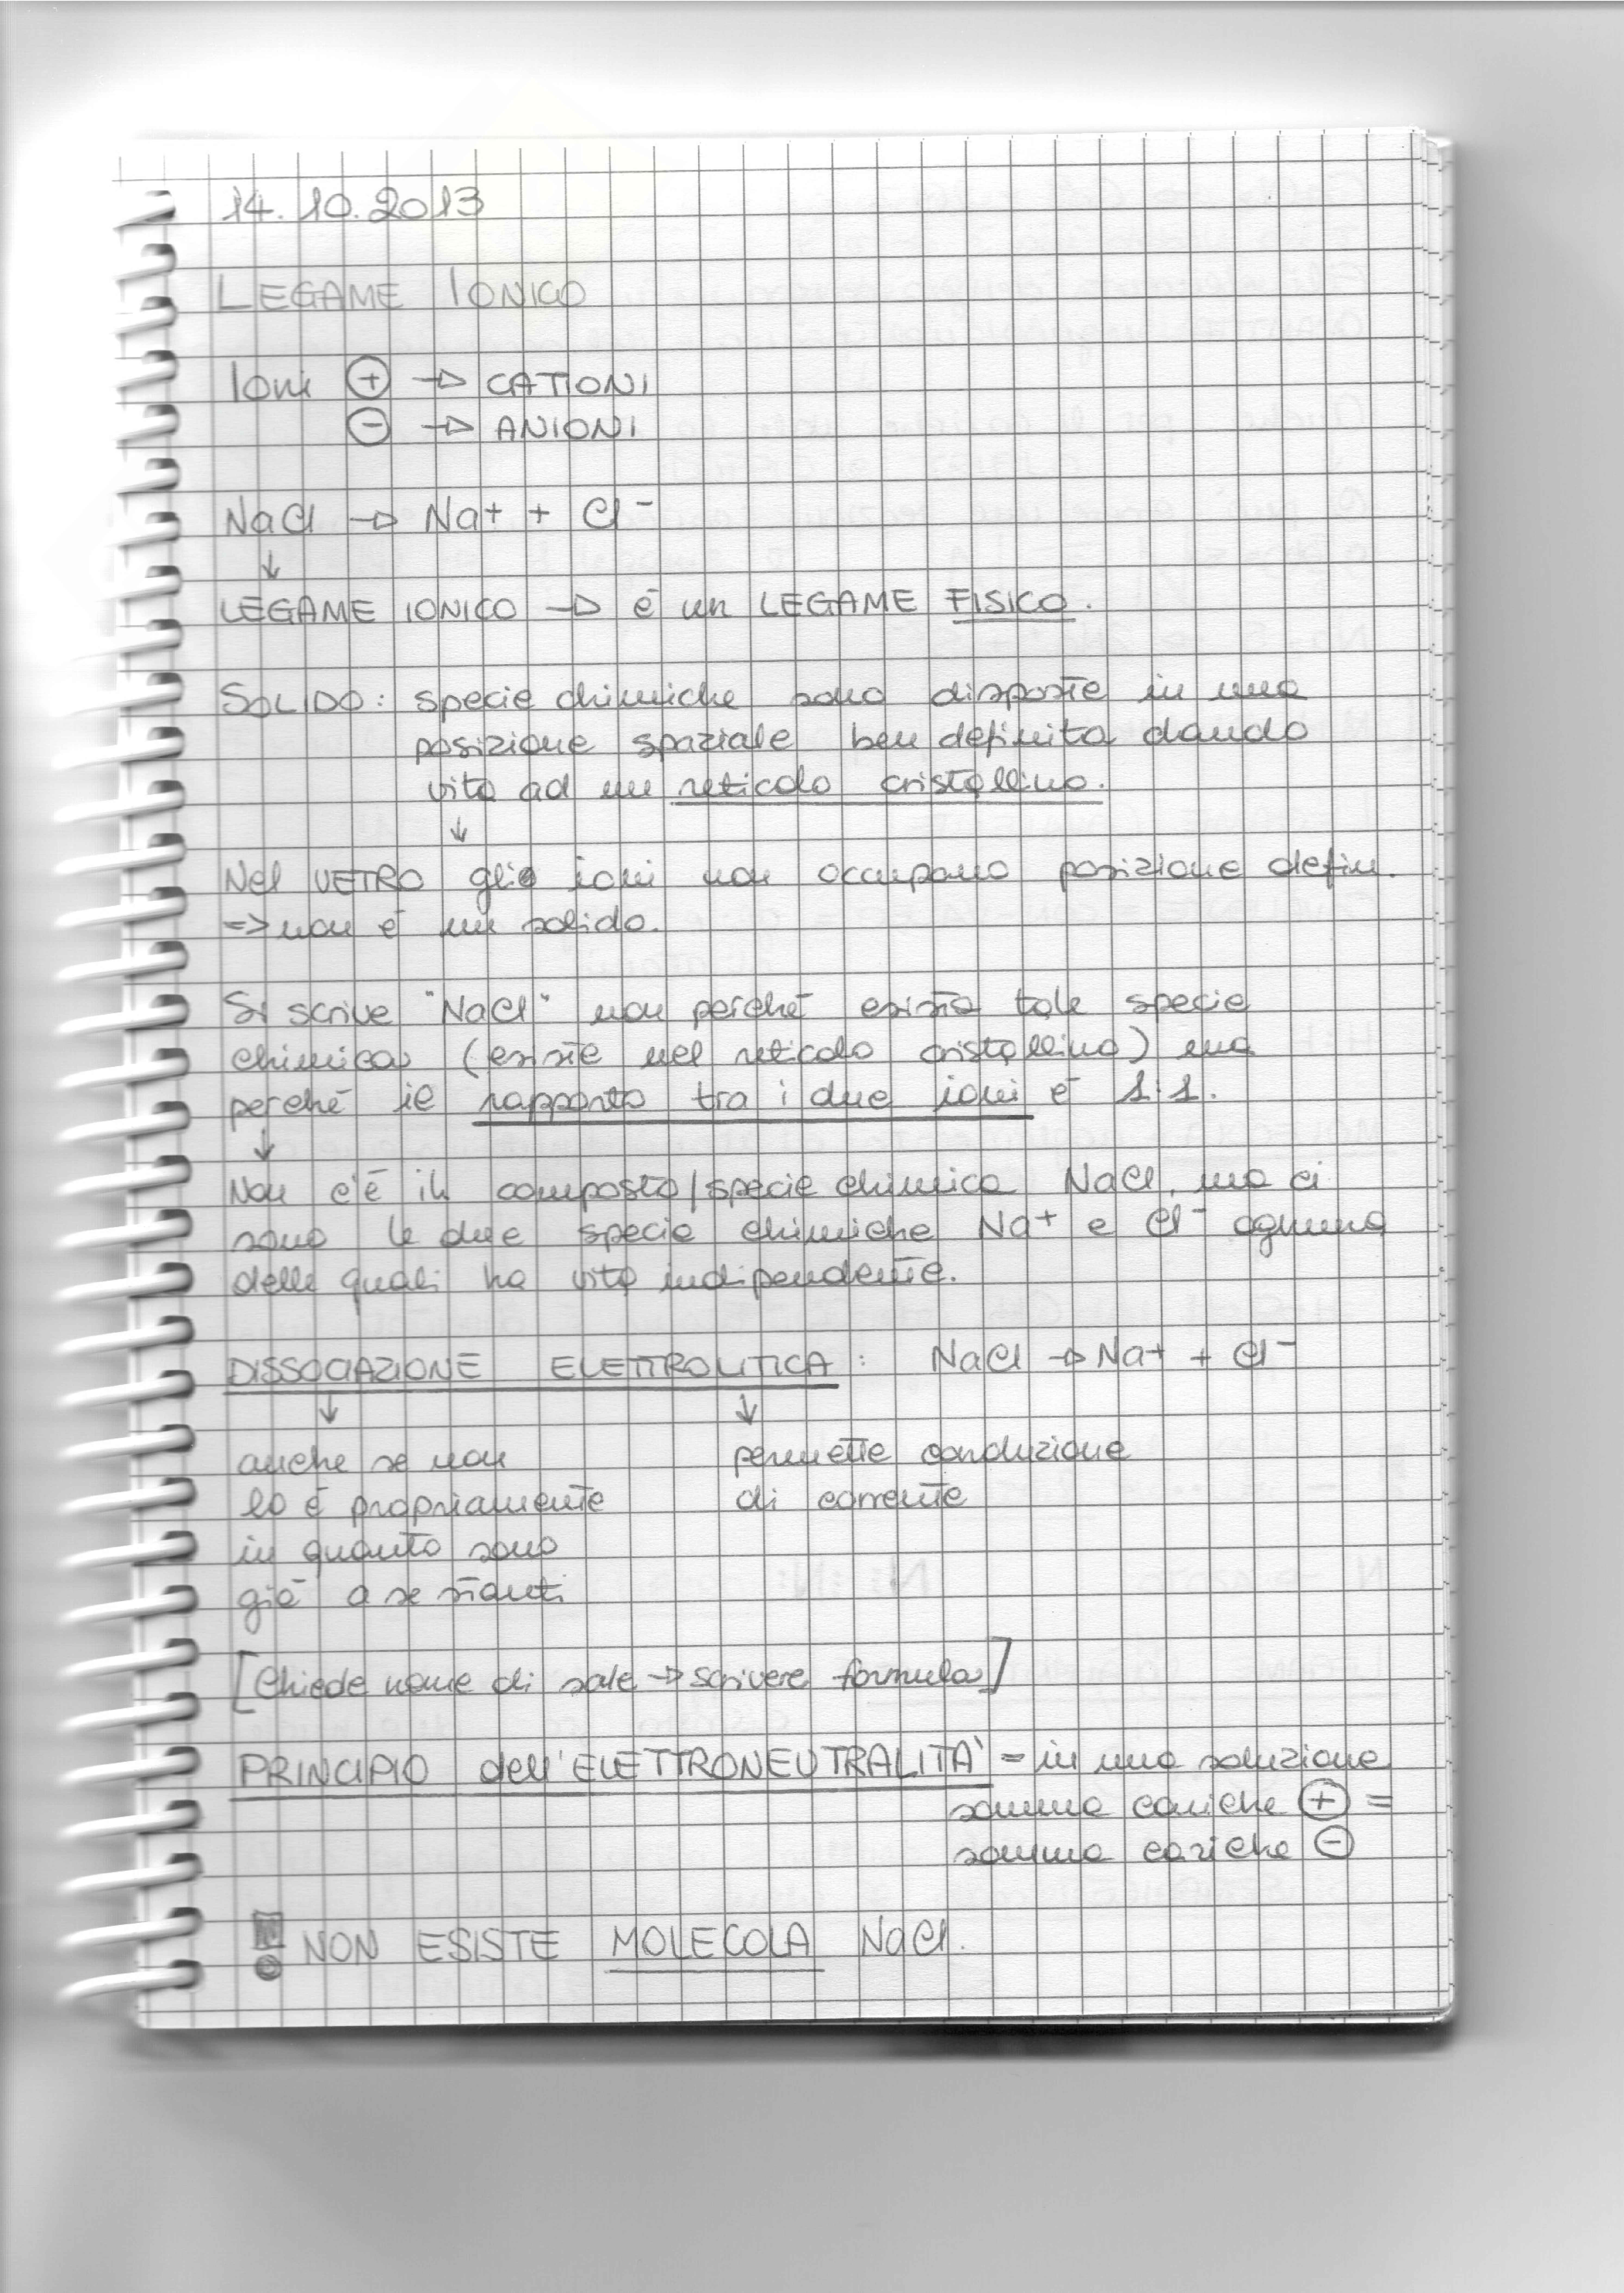 14.10.2013
LEGAME IONICO
Ioni ⊕ → CATIONI
⊖ → ANIONI
NaCl → Na+ + Cl-
↓
LEGAME IONICO → è un LEGAME FISICO.
SOLIDO: specie chimiche sono disposte in una
posizione spaziale ben definita dando
vita ad un reticolo cristallino.
↓
Nel VETRO gli ioni non occupano posizione defin.
=> non è un solido.
Si scrive "NaCl" non perché esista tale specie
chimica (esiste nel reticolo cristallino) ma
perché il rapporto tra i due ioni è 1:1.
↓
Non c'è il composto/specie chimica NaCl, ma ci
sono le due specie chimiche Na+ e Cl- ognuna
delle quali ha vita indipendente.
DISSOCIAZIONE ELETTROLITICA: NaCl → Na+ + Cl-
↓ ↓
anche se non permette conduzione
lo è propriamente di corrente
in quanto sono
già a se stanti
[Chiede nome di sale → scrivere formula]
PRINCIPIO dell'ELETTRONEUTRALITA' = in una soluzione
somma cariche ⊕ =
somma cariche ⊖
! NON ESISTE MOLECOLA NaCl.